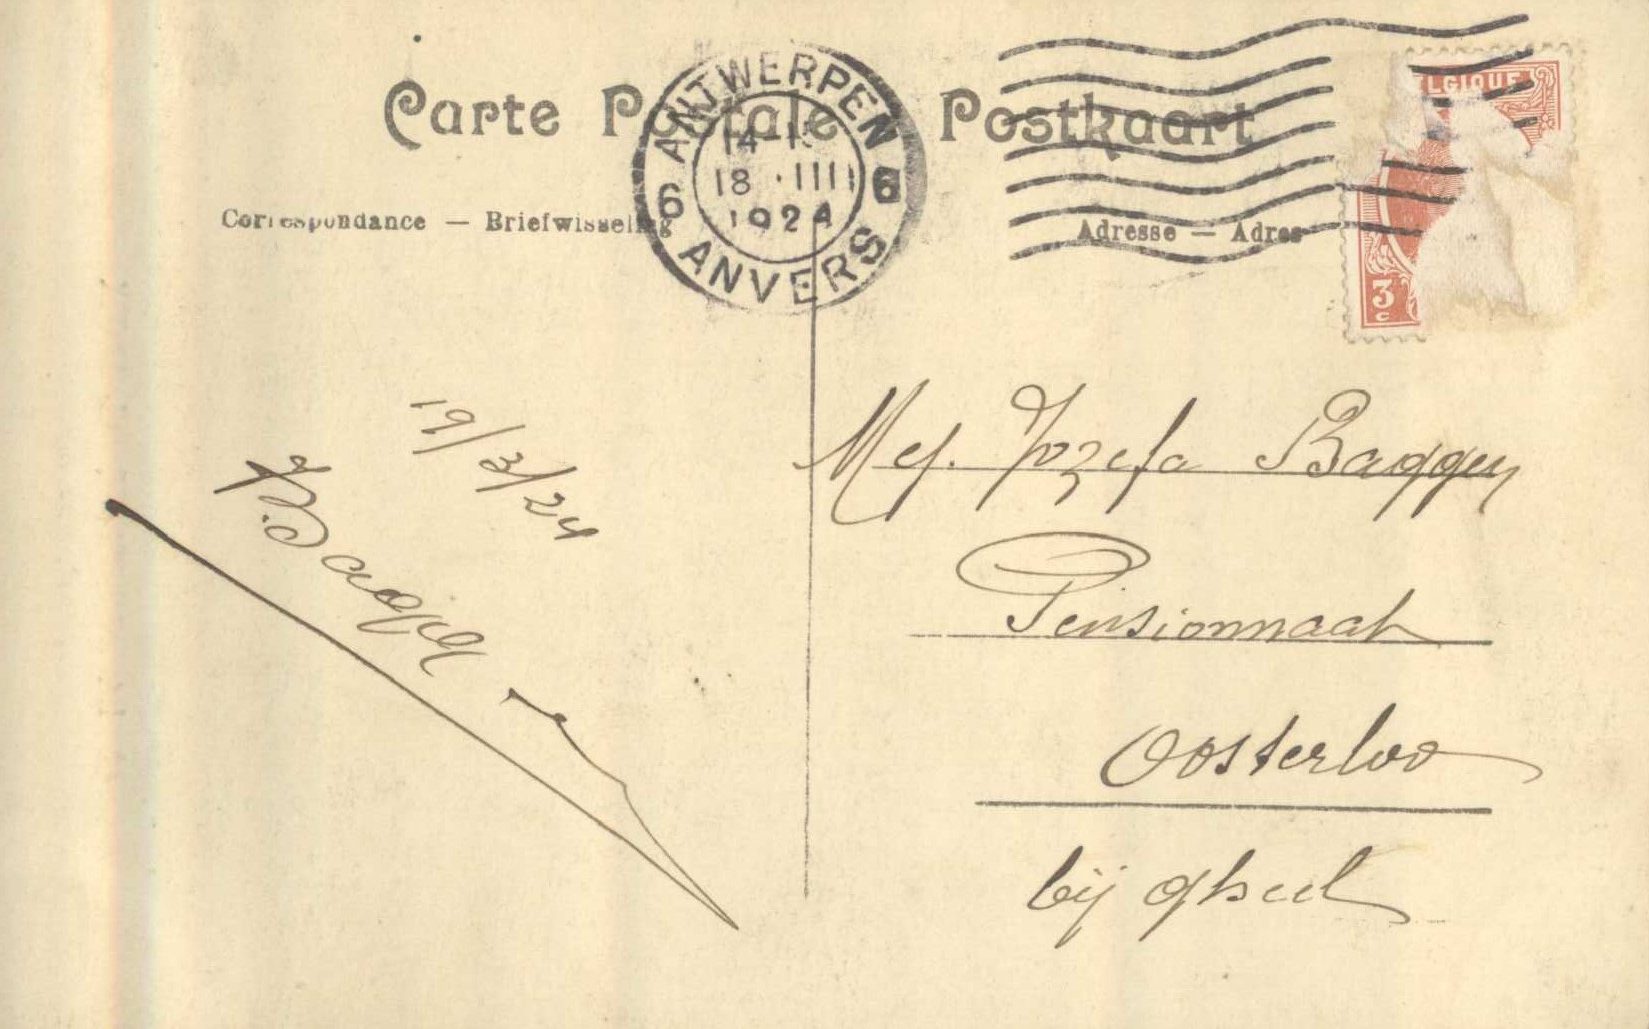 Carte Postale Postkaart
Correspondance — Briefwisseling
Adresse — Adres
ANTWERPEN
14-1
18 · III
1924
6 6
ANVERS
BELGIQUE
3
c
19/3/24
Mej. Jozefa Baggen
Pensionnaat
Oosterloo
bij Gheel